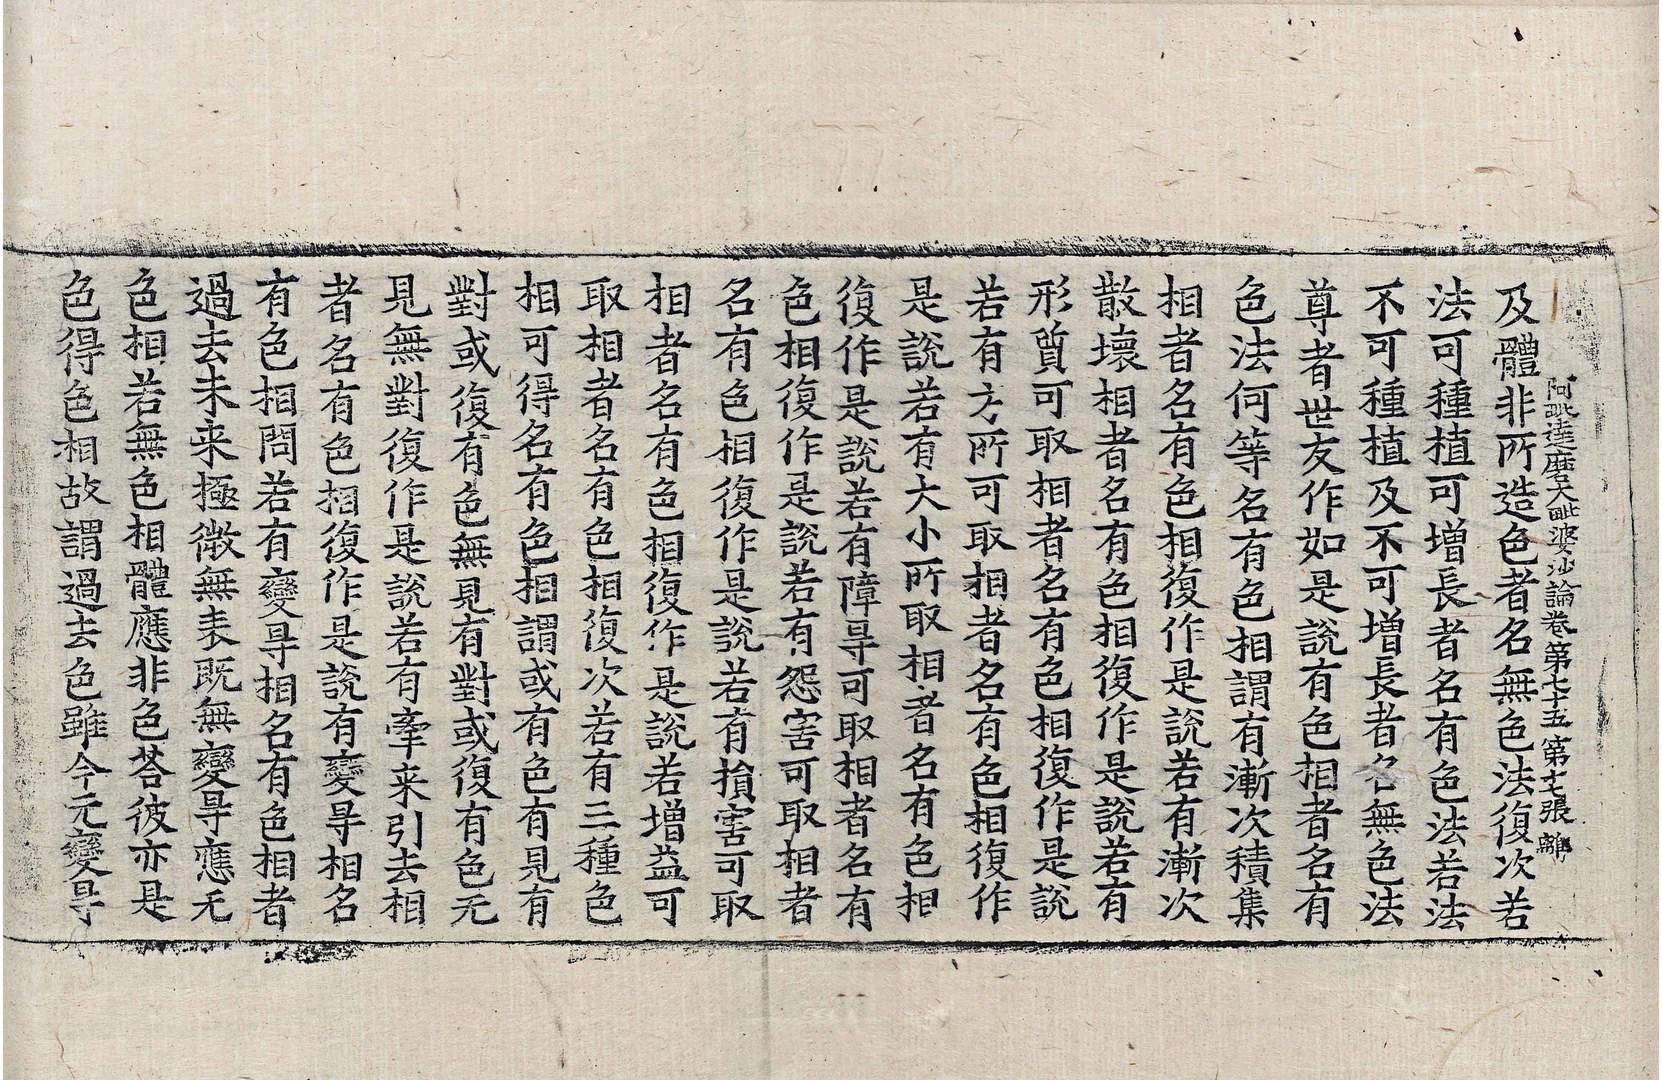 阿毗達磨大毗婆沙論卷第七十五 第七張 離
及體非所造色者名無色法復次若
法可種植可增長者名有色法若法
不可種植及不可增長者名無色法
尊者世友作如是說有色相者名有
色法何等名有色相謂有漸次積集
相者名有色相復作是說若有漸次
散壞相者名有色相復作是說若有
形質可取相者名有色相復作是說
若有方所可取相者名有色相復作
是說若有大小所取相者名有色相
復作是說若有障㝵可取相者名有
色相復作是說若有怨害可取相者
名有色相復作是說若有損害可取
相者名有色相復作是說若增益可
取相者名有色相復次若有三種色
相可得名有色相謂或有色有見有
對或復有色無見有對或復有色无
見無對復作是說若有牽来引去相
者名有色相復作是說有變㝵相名
有色相問若有變㝵相名有色相者
過去未来極微無表既無變㝵應无
色相若無色相體應非色荅彼亦是
色得色相故謂過去色雖今无變㝵